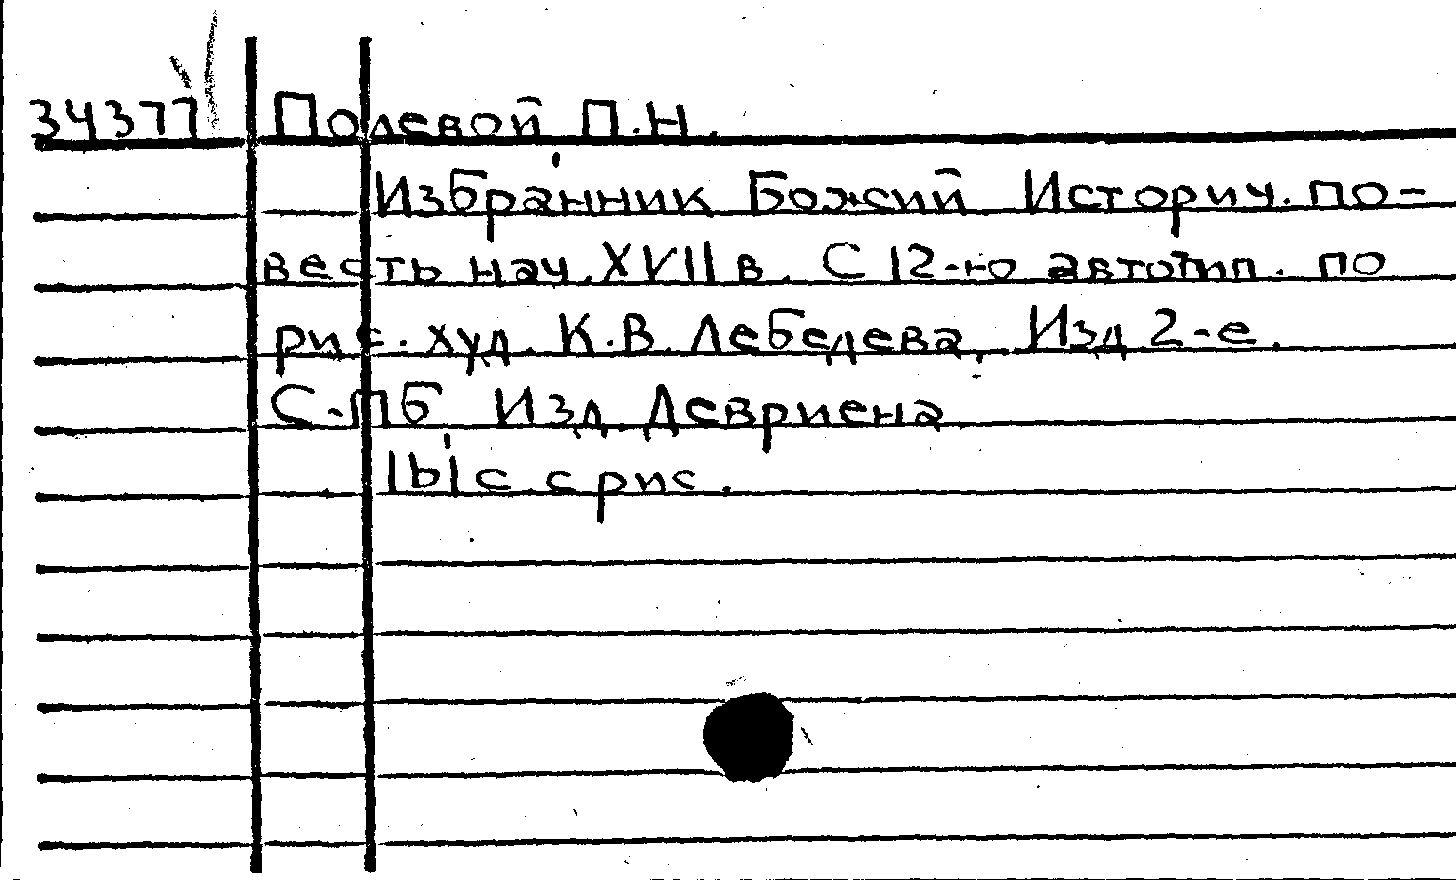 34377 Полевой, П.Н.
Избранник Божий Историч. по-
весть нач. XVII в. С 12-ю автотип. по
рис. худ. К.В. Лебедева. Изд 2-е.
С-Пб, Изд. Девриена
161 с. с рис.